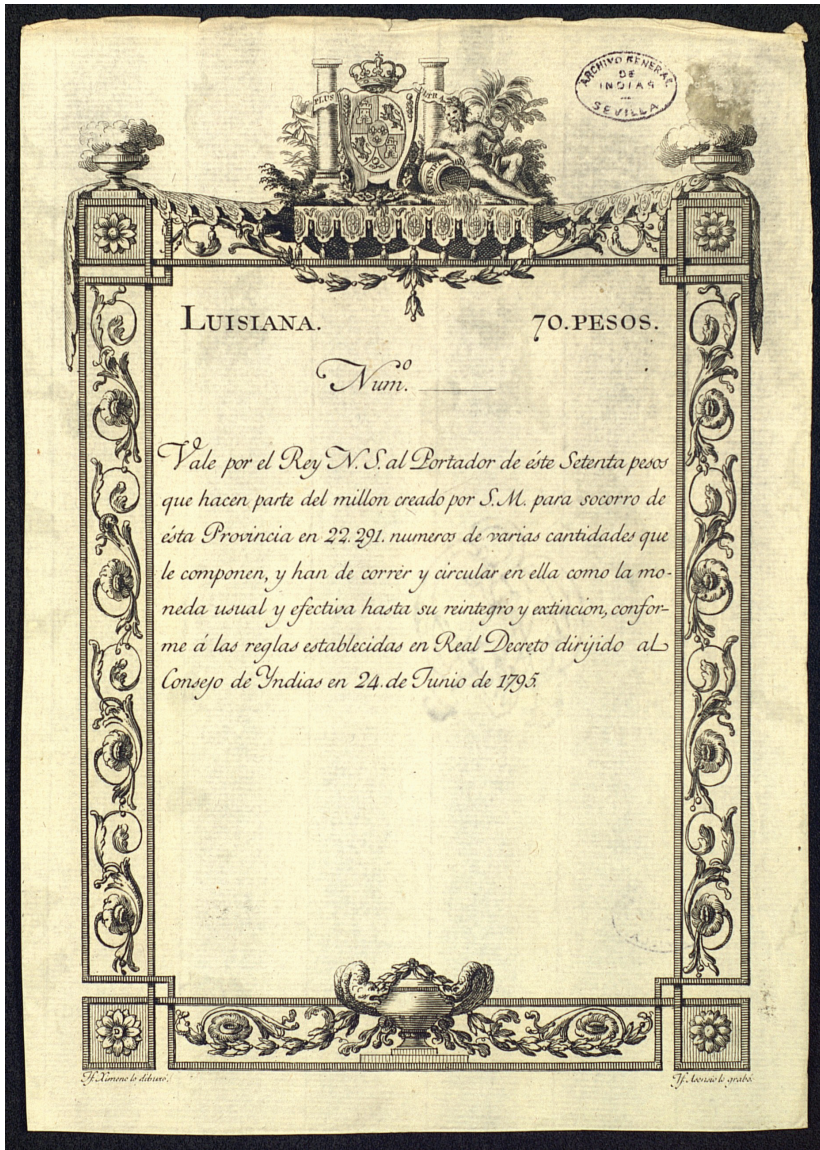 ARCHIVO GENERAL
DE
INDIAS
SEVILLA
PLUS
LUISIANA. 70. PESOS.
Num.º
Vale por el Rey N. S. al Portador de éste Setenta pesos
que hacen parte del millon creado por S. M. para socorro de
ésta Provincia en 22.291. numeros de varias cantidades que
le componen, y han de correr y circular en ella como la mo-
neda usual y efectiva hasta su reintegro y extincion, confor-
me á las reglas establecidas en Real Decreto dirijido al
Consejo de Yndias en 24. de Junio de 1795.
Jf. Ximeno lo dibuxó.
Jf. Asensio lo grabó.